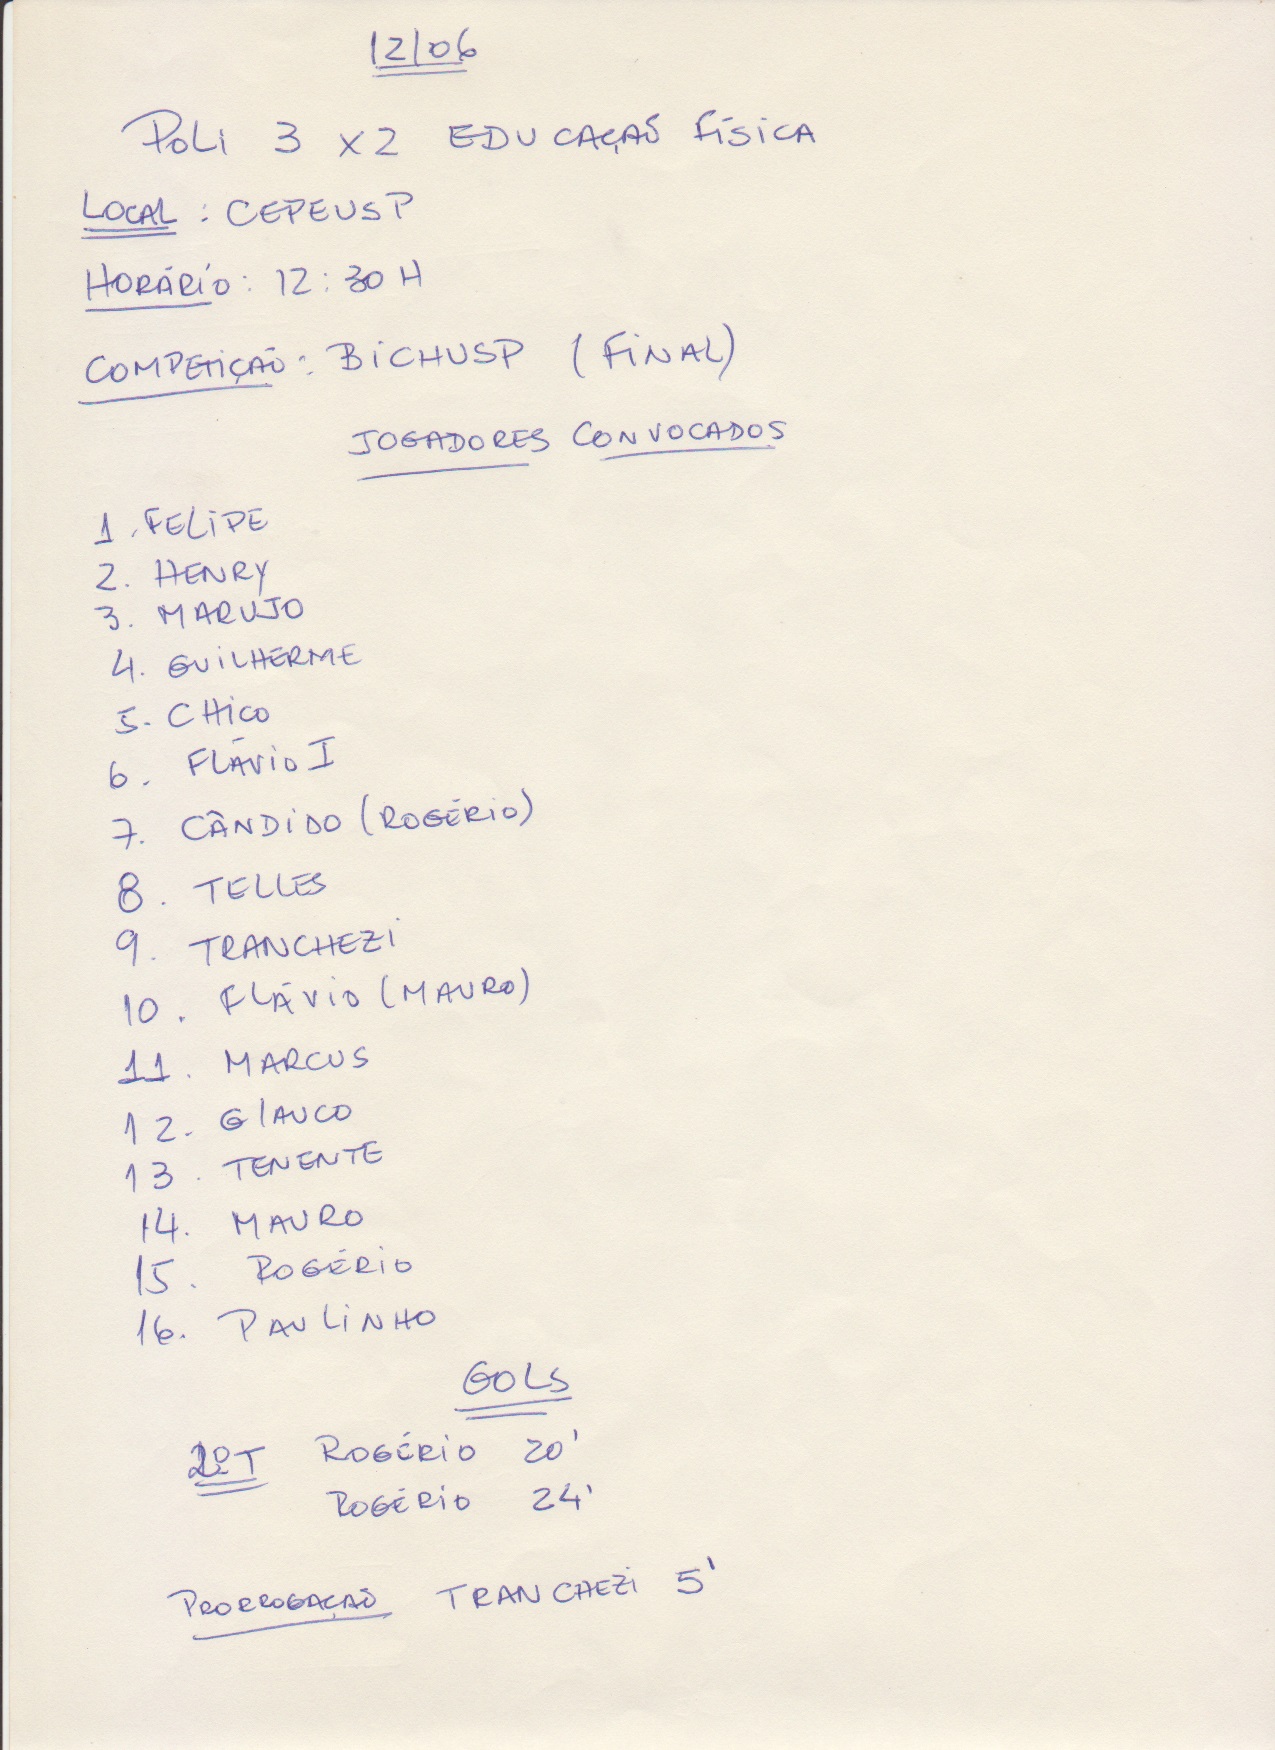 12/06
POLI 3 X 2 EDUCAÇÃO FÍSICA
LOCAL : CEPEUSP
HORÁRIO : 12 : 30 H
COMPETIÇÃO : BICHUSP ( FINAL)
JOGADORES CONVOCADOS
1. FELIPE
2. HENRY
3. MARUJO
4. GUILHERME
5. CHICO
6. FLÁVIO I
7. CÂNDIDO (ROGÉRIO)
8. TELLES
9. TRANCHEZI
10. FLÁVIO (MAURO)
11. MARCUS
12. GLAUCO
13. TENENTE
14. MAURO
15. ROGÉRIO
16. PAULINHO
GOLS
2ºT ROGÉRIO 20'
ROGÉRIO 24'
PRORROGAÇÃO TRANCHEZI 5'